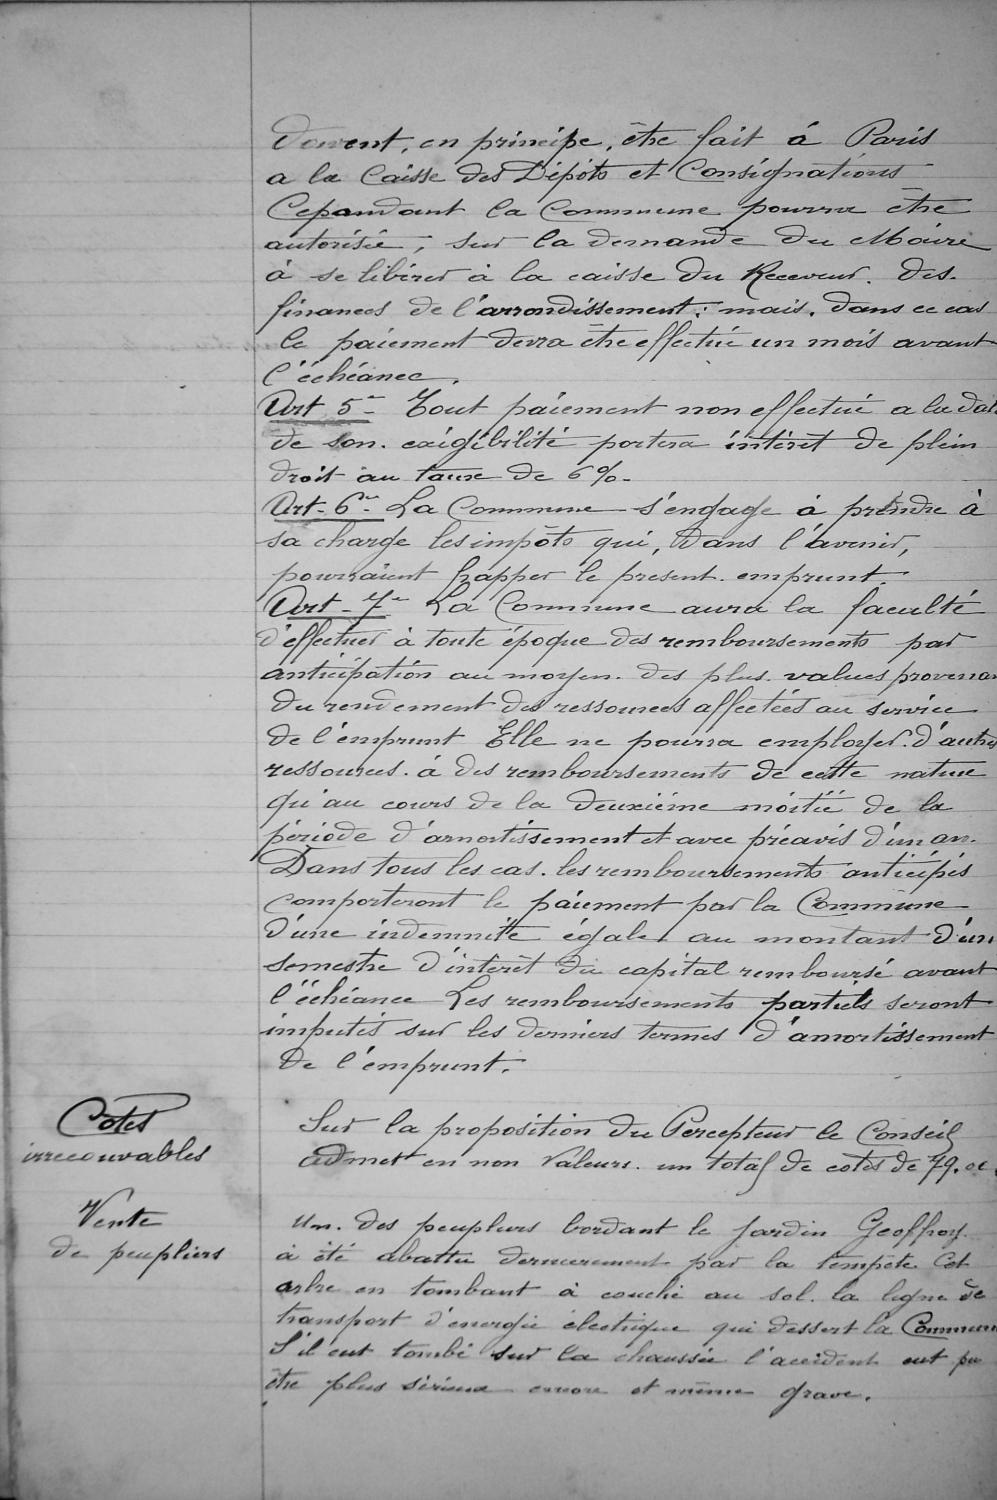 doivent, en principe, être fait à Paris
a la Caisse des Dépôts et Consignations
Cependant la Commune pourra être
autorisée, sur la demande du Maire
à se libérer à la caisse du Receveur. des.
finances de l'arrondissement; mais, dans ce cas
le paiement devra être effectué un mois avant
l'échéance.
Art 5e - Tout paiement non effectué a la dat
de son. exigibilité portera intérêt de plein
droit au taux de 6%-
Art-6e- La Commune s'engage à prendre à
sa charge les impôts qui, dans l'avenir,
pourraient frapper le present. emprunt.
Art-7e La Commune aura la faculté
d'effectuer à toute époque des remboursements par
anticipation au moyen. des plus. values provenan
du rendement des ressources affectées au service
de l'emprunt Elle ne pourra employer. d'autres
ressources. à des remboursements de cette nature
qu'au cours de la deuxième moitié de la
période d'amortissement et avec préavis d'un an.
Dans tous les cas. les remboursements anticipés
comporteront le paiement par la Commune
d'une indemnité égale au montant d'un
semestre d'intérêt du capital remboursé avant
l'échéance Les remboursements partiels seront
imputés sur les derniers termes d'amortissement
de l'emprunt.
Cotes
irrecouvables
Sur la proposition du Percepteur le Conseil
admet en non valeurs. un total de cotes de 79.
Vente
de peupliers
Un. des peupliers bordant le jardin Geoffroy
à été abattu dernierement par la tempête Cet
arbre en tombant à couché au sol. la ligne de
transport d'énergie électrique qui dessert la Commune
S'il eut tombé sur la chaussée l'accident eut pu
être plus sérieux encore et même grave.